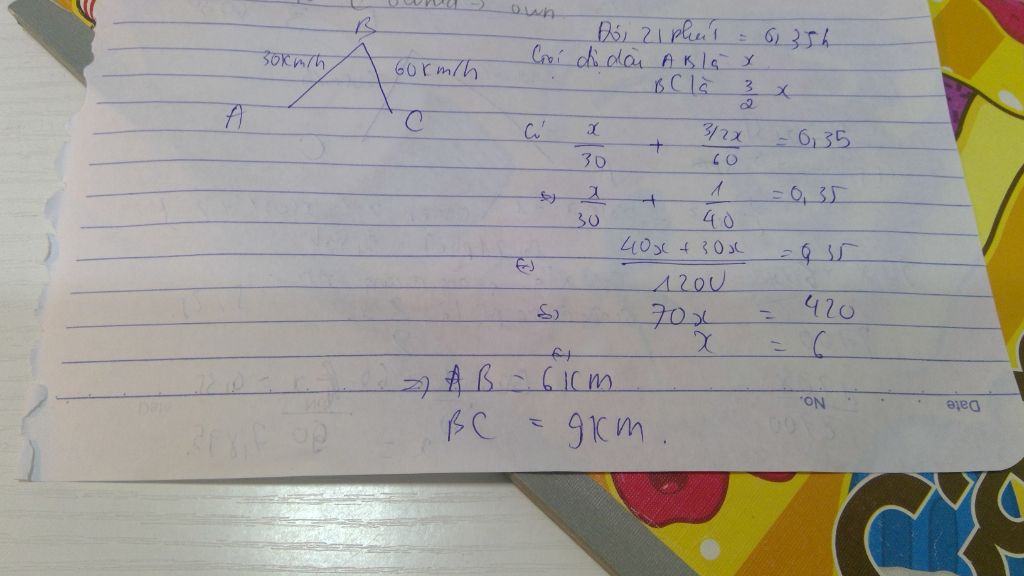 B
30km/h
60km/h
A
C
Đổi 21 phút = 0,35h
Gọi độ dài AB là x
BC là 3/2 x
Có x/30 + 3/2x/60 = 0,35
x/30 + 1/40 = 0,35
40x + 30x/1200 = 0,35
70x = 420
x = 6
=> AB = 6km
BC = 9km.
No.
Date